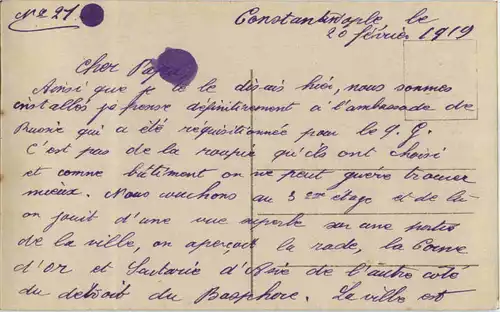 No 21
Constantinople le
20 février 1919
Cher Papa,
Ainsi que je te le disais hier, nous sommes
installés je pense définitivement à l'ambassade de
Russie qui a été réquisitionnée pour le q. G.
C'est pas de la roupie qu'ils ont choisi
et comme bâtiment on ne peut guère trouver
mieux. Nous couchons au 3eme étage et de là
on jouit d'une vue superbe sur une partie
de la ville, on aperçoit la rade, la Corne
d'or et Scutarie d'Asie de l'autre coté
du détroit du Bosphore. La ville est